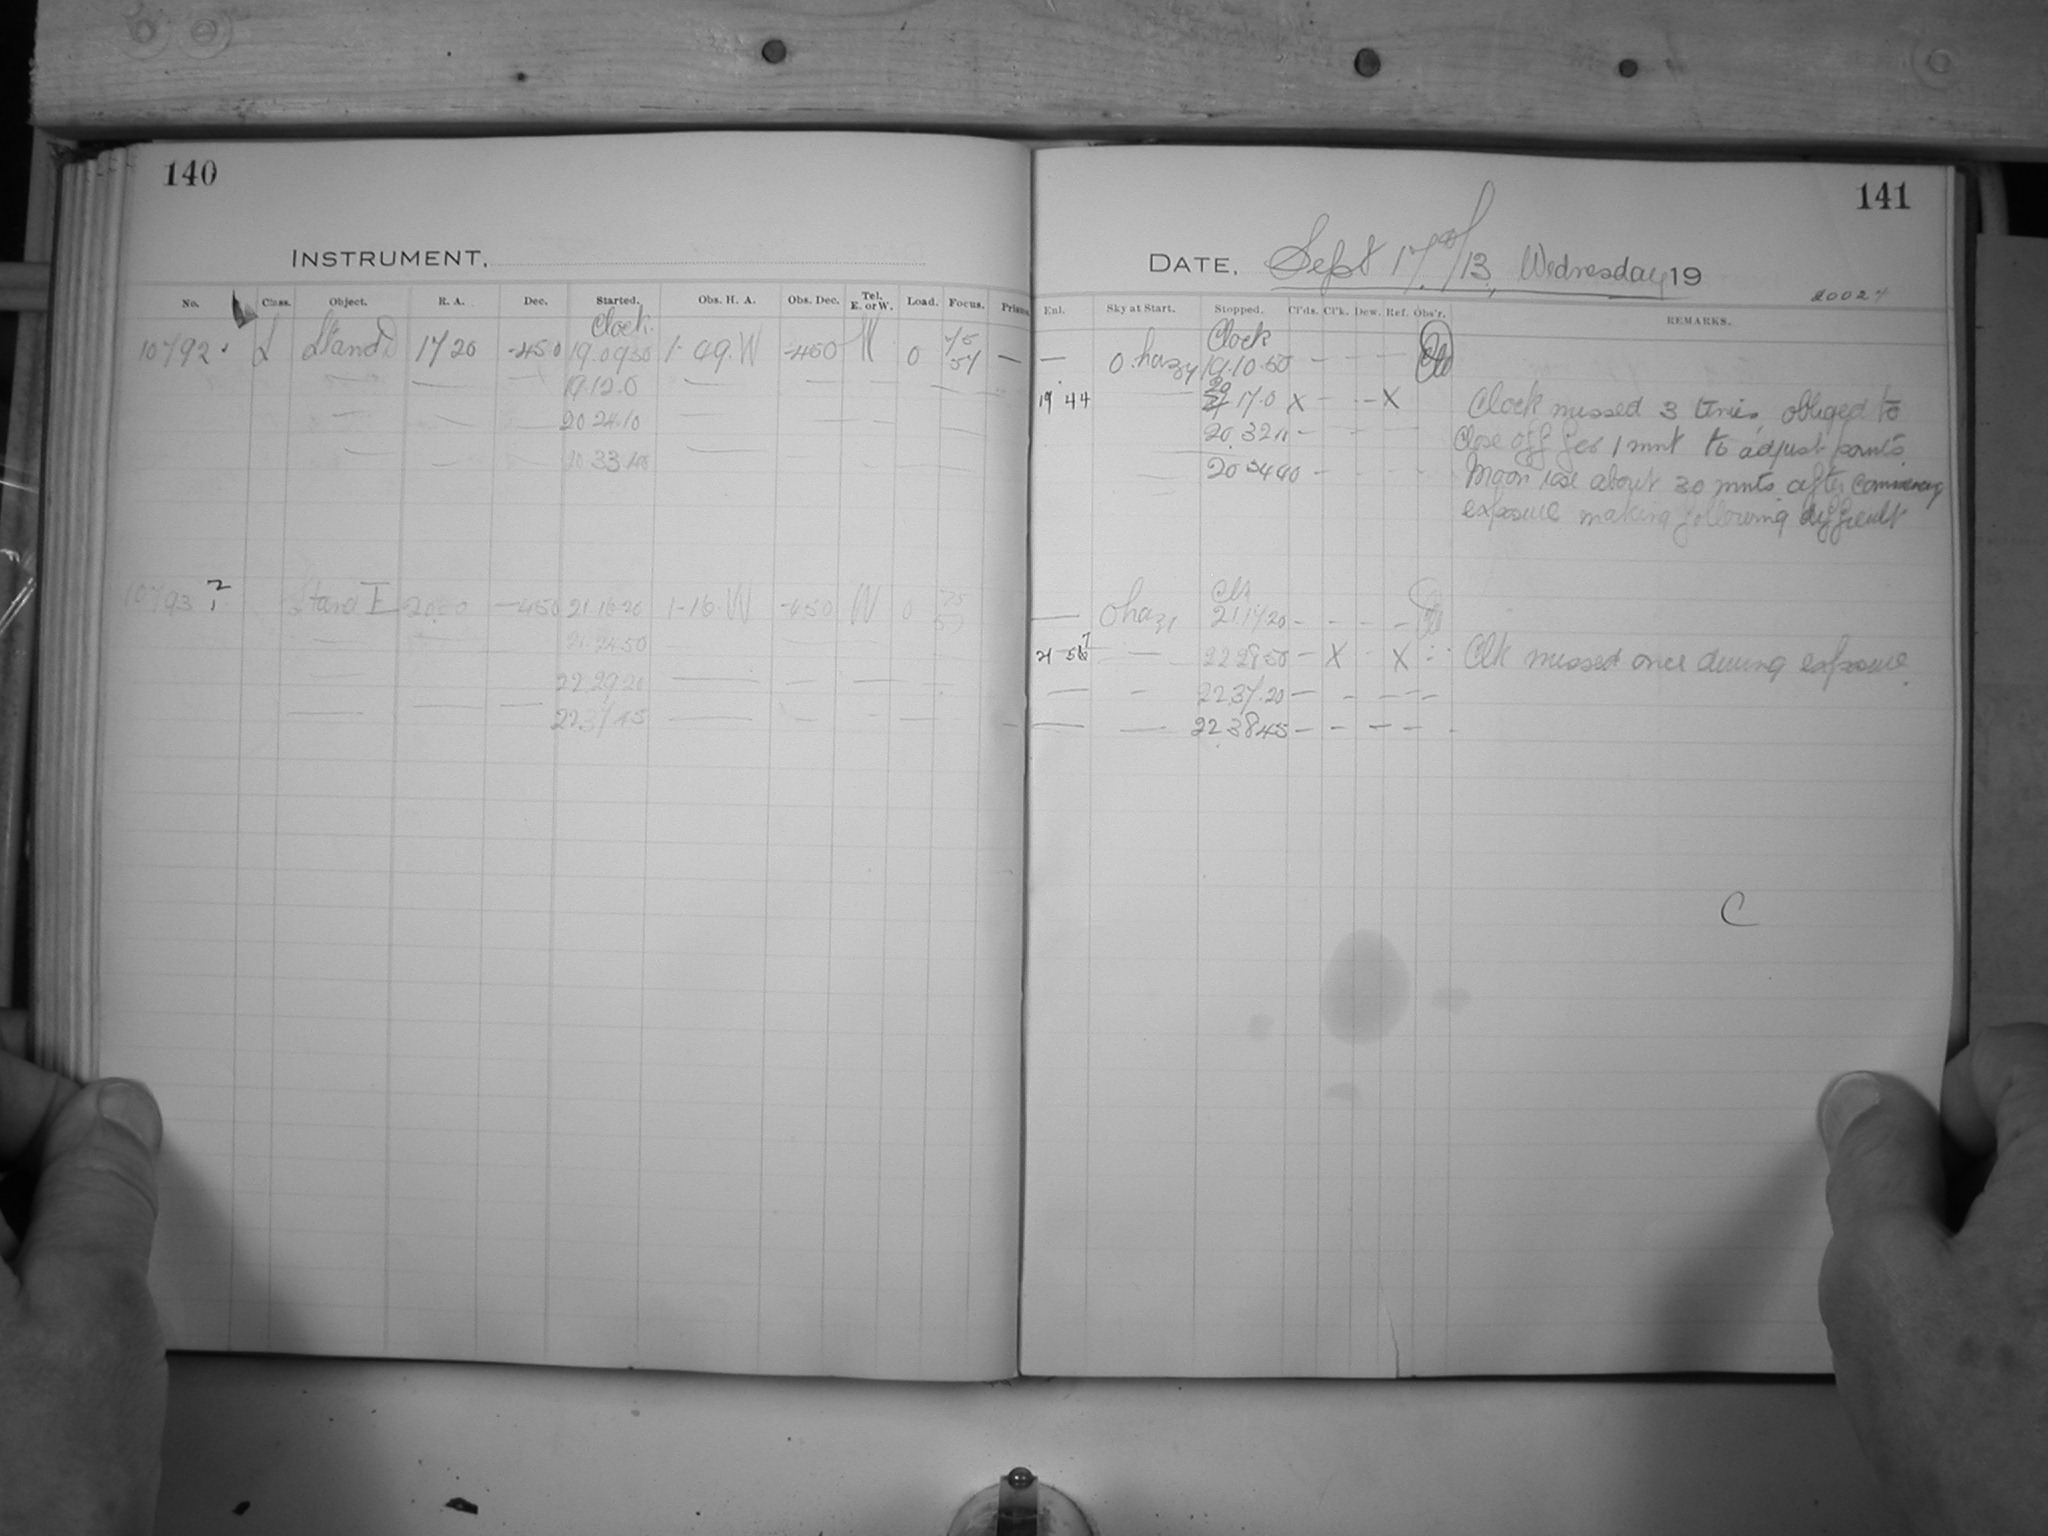 140
141
INSTRUMENT,
DATE, Sept 17th/13, Wednesday 19
20027
No. Class. Object. R. A. Dec. Started. Obs. H. A. Obs. Dec. Tel. E. or W. Load. Focus. Prism.
Enl. Sky at Start. Stopped. Cl'ds. Cl'k. Dew. Ref. Obs'r. REMARKS.
Clock. Clock
10792 L Stand D 17 20 -450 19.09 30 1-49.W -450 W 0 — — 0 hazy 19.10.50 — — —
— — — 19.12.0 — — — — — 19 44 — 20 17.0 X — — X Clock missed 3 times, obliged to
— — — 20 24.10 — — — 20.32 — — — Close off for 1 mnt to adjust points.
— — — 20.33 — — — 20 — — — Moon rose about 30 mnts after commencing
exposure making following difficult
10793 ? Stand E -450 21.16.20 1-16.W -450 W 0 — 0 hazy 21.17.20 — — — —
— — 21.24.50 — — — 21 — 22 28 50 — X X Clk missed once during exposure
— — 22.29.20 — — — — — — 22.37.20 — — — —
— — — 22.37.45 — — — — — — — 22.38 45 — — — —
C